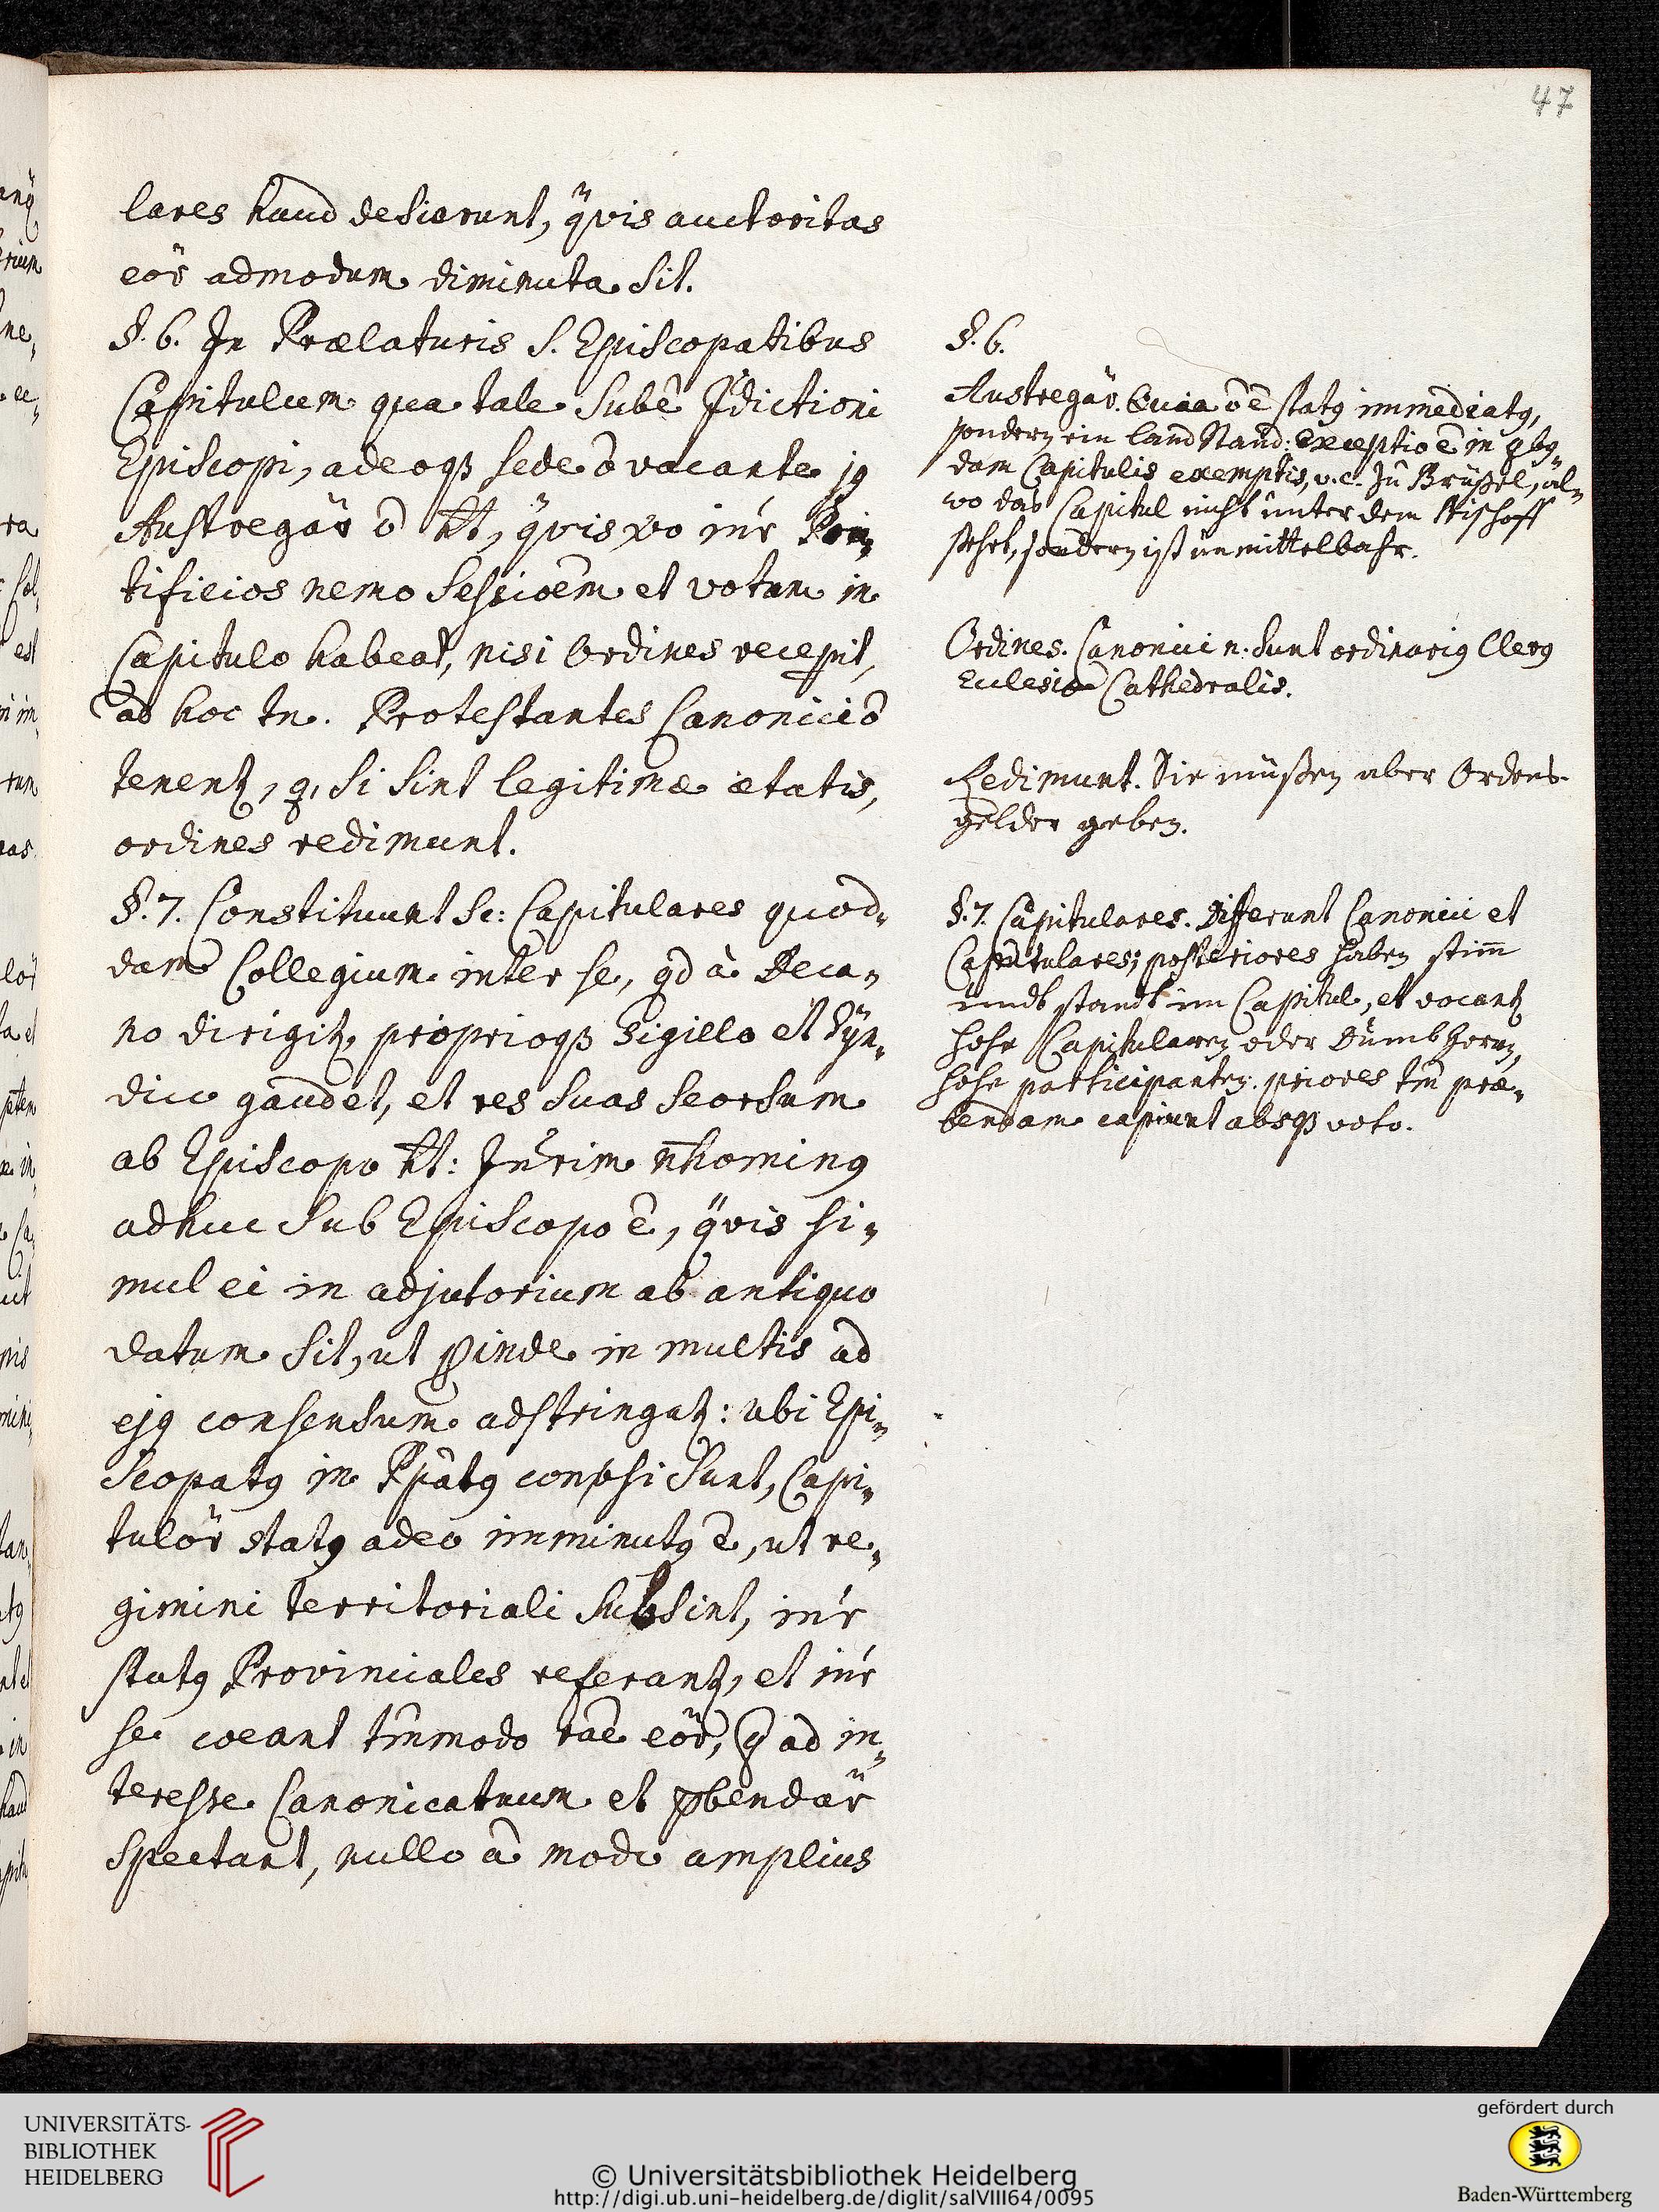 47
lares haud desierunt, q̈vis auctoritas
eör admodum diminuta sit.
§. 6. In Prælaturis s. Episcopatibus
Capitulum qua tale subê Jdictioni
Episcopi, adeoqß sede ō vacante jq
Austregär ō ht, q̈vis vo in'r Pon„
tificios nemo sessioêm et votum in
Capitulo habeat, nisi Ordines recepit,
ad hoc tn. Protestantes Canonici ō
tenentz, q, si sint legitimæ ætatis,
ordines redimunt.
§. 7. Constituunt sc: Capitulares quod„
dam Collegium inter se, qd à Deca„
no dirigitz, proprioqß sigillo et Syn„
dico gaudet, et res suas seorsum
ab Episcopo ht: In'rim nhominq
adhuc sub Episcopo ê, q̈vis si„
mul ei in adjutorium ab antiquo
datum sit, ut pinde in multis ad
ejq consensum adstringatz: ubi Epi„
scopatq in Ppâtq conpsi sunt, Capi„
tulör statq adeo imminutq ê, ut re„
gimini territoriali subsint, in'r
statq Provinciales referantz, et in'r
se coeant tm̄modo raê eör, q ad in„
teresse Canonicatuum et pbendär
spectant, nullo a modo amplius
§. 6.
Austregär. Quia ō ê statq immediatq,
sondern ein landstand: Exceptio ê in qbq„
dam Capitulis exemptis, v. c. Zu Brüßel, al„
wo das Capitul nicht unter dem Bischoff
stehet, sondern ist unmittelbahr.
Ordines. Canonici n. sunt ordinariq Clerq
Ecclesiæ Cathedralis.
Redimunt. Sie müßen aber Ordens-
gelder geben.
§. 7. Capitulares. Differunt Canonici et
Capitulares; posteriores haben stim̄
undt standt im Capitul, et vocantz
hohe Capitularen oder Dumbherrn,
hohe participanten. priores tm̄ præ„
bendam capiunt absqß voto.
UNIVERSITÄTS-
BIBLIOTHEK
HEIDELBERG
© Universitätsbibliothek Heidelberg
http://digi.ub.uni-heidelberg.de/diglit/salVIII64/0095
gefördert durch
Baden-Württemberg